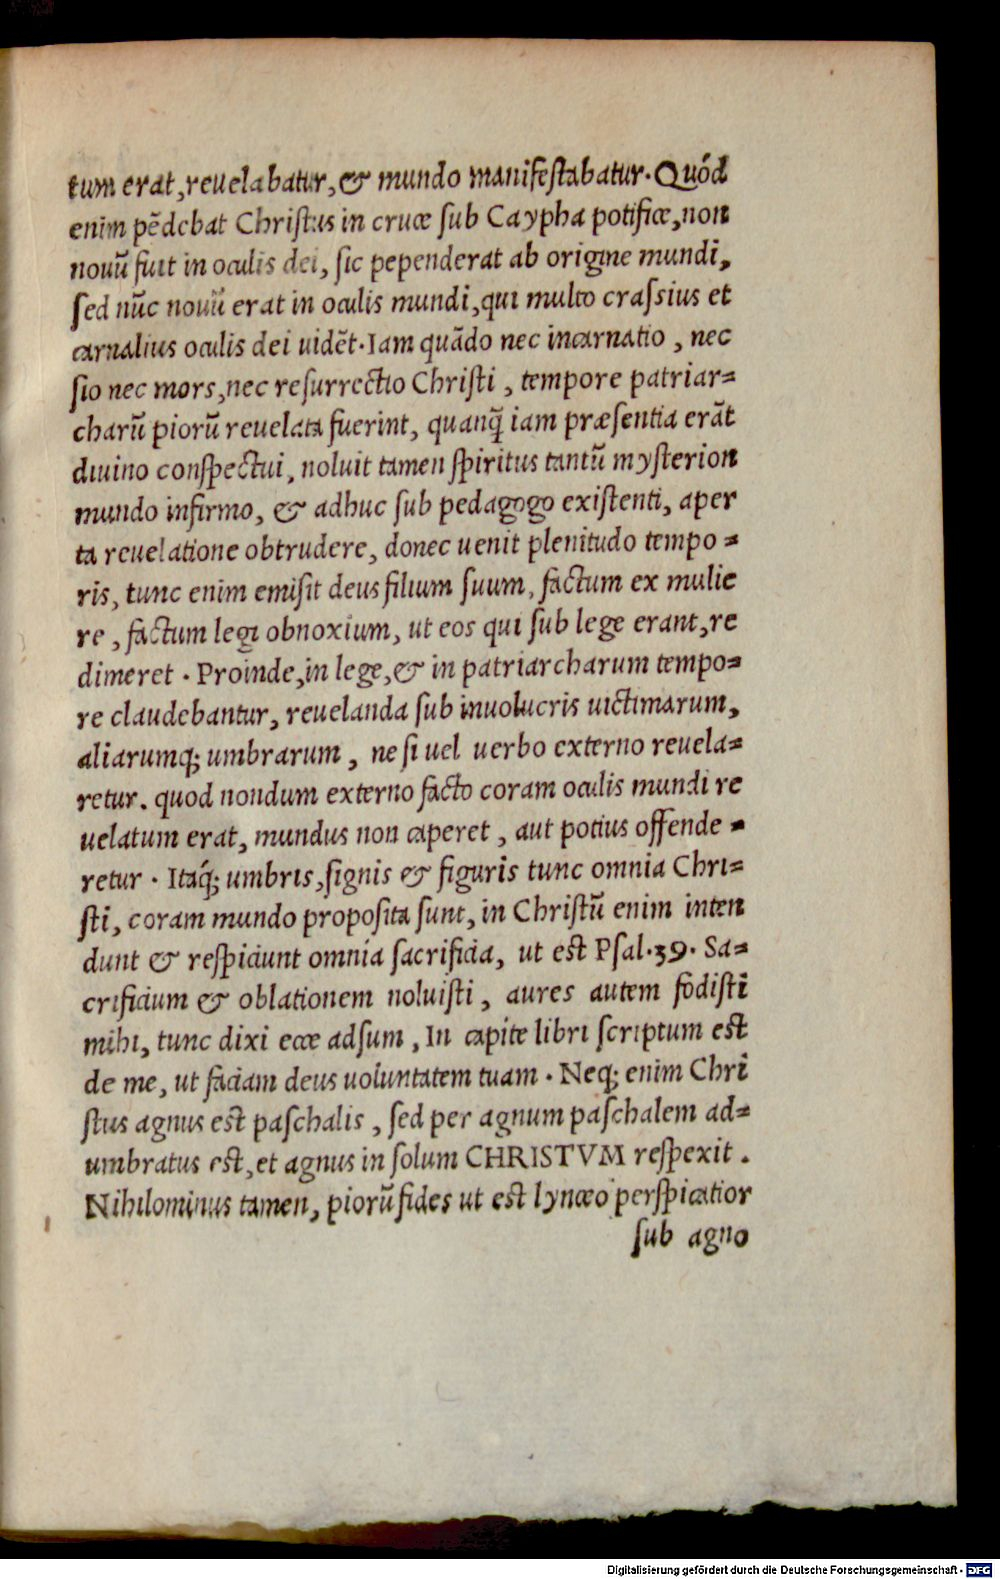 tum erat, reuelabatur, & mundo manifestabatur. Quód
enim pēdebat Christus in cruce sub Caypha pōtifice, non
nouū fuit in oculis dei, sic pependerat ab origine mundi,
sed nūc nouū erat in oculis mundi, qui multo crassius et
carnalius oculis dei uidēt. Iam quādo nec incarnatio, nec
sio nec mors, nec resurrectio Christi, tempore patriar=
charū piorū reuelata fuerint, quanq̄ iam præsentia erāt
diuino conspectui, noluit tamen spiritus tantū mysterion
mundo infirmo, & adhuc sub pedagogo existenti, aper
ta reuelatione obtrudere, donec uenit plenitudo tempo=
ris, tunc enim emisit deus filium suum, factum ex mulie
re, factum legi obnoxium, ut eos qui sub lege erant, re
dimeret. Proinde, in lege, & in patriarcharum tempo=
re claudebantur, reuelanda sub inuolucris uictimarum,
aliarumq; umbrarum, ne si uel uerbo externo reuela=
retur. quod nondum externo facto coram oculis mundi re
uelatum erat, mundus non caperet, aut potius offende=
retur. Itaq́; umbris, signis & figuris tunc omnia Chri=
sti, coram mundo proposita sunt, in Christū enim inten
dunt & respiciunt omnia sacrificia, ut est Psal.39. Sa=
crificium & oblationem noluisti, aures autem fodisti
mihi, tunc dixi ecce adsum, In capite libri scriptum est
de me, ut faciam deus uoluntatem tuam. Neq; enim Chri
stus agnus est paschalis, sed per agnum paschalem ad=
umbratus est, et agnus in solum CHRISTVM respexit.
Nihilominus tamen, piorū fides ut est lynceo perspicatior
sub agno
Digitalisierung gefördert durch die Deutsche Forschungsgemeinschaft - DFG